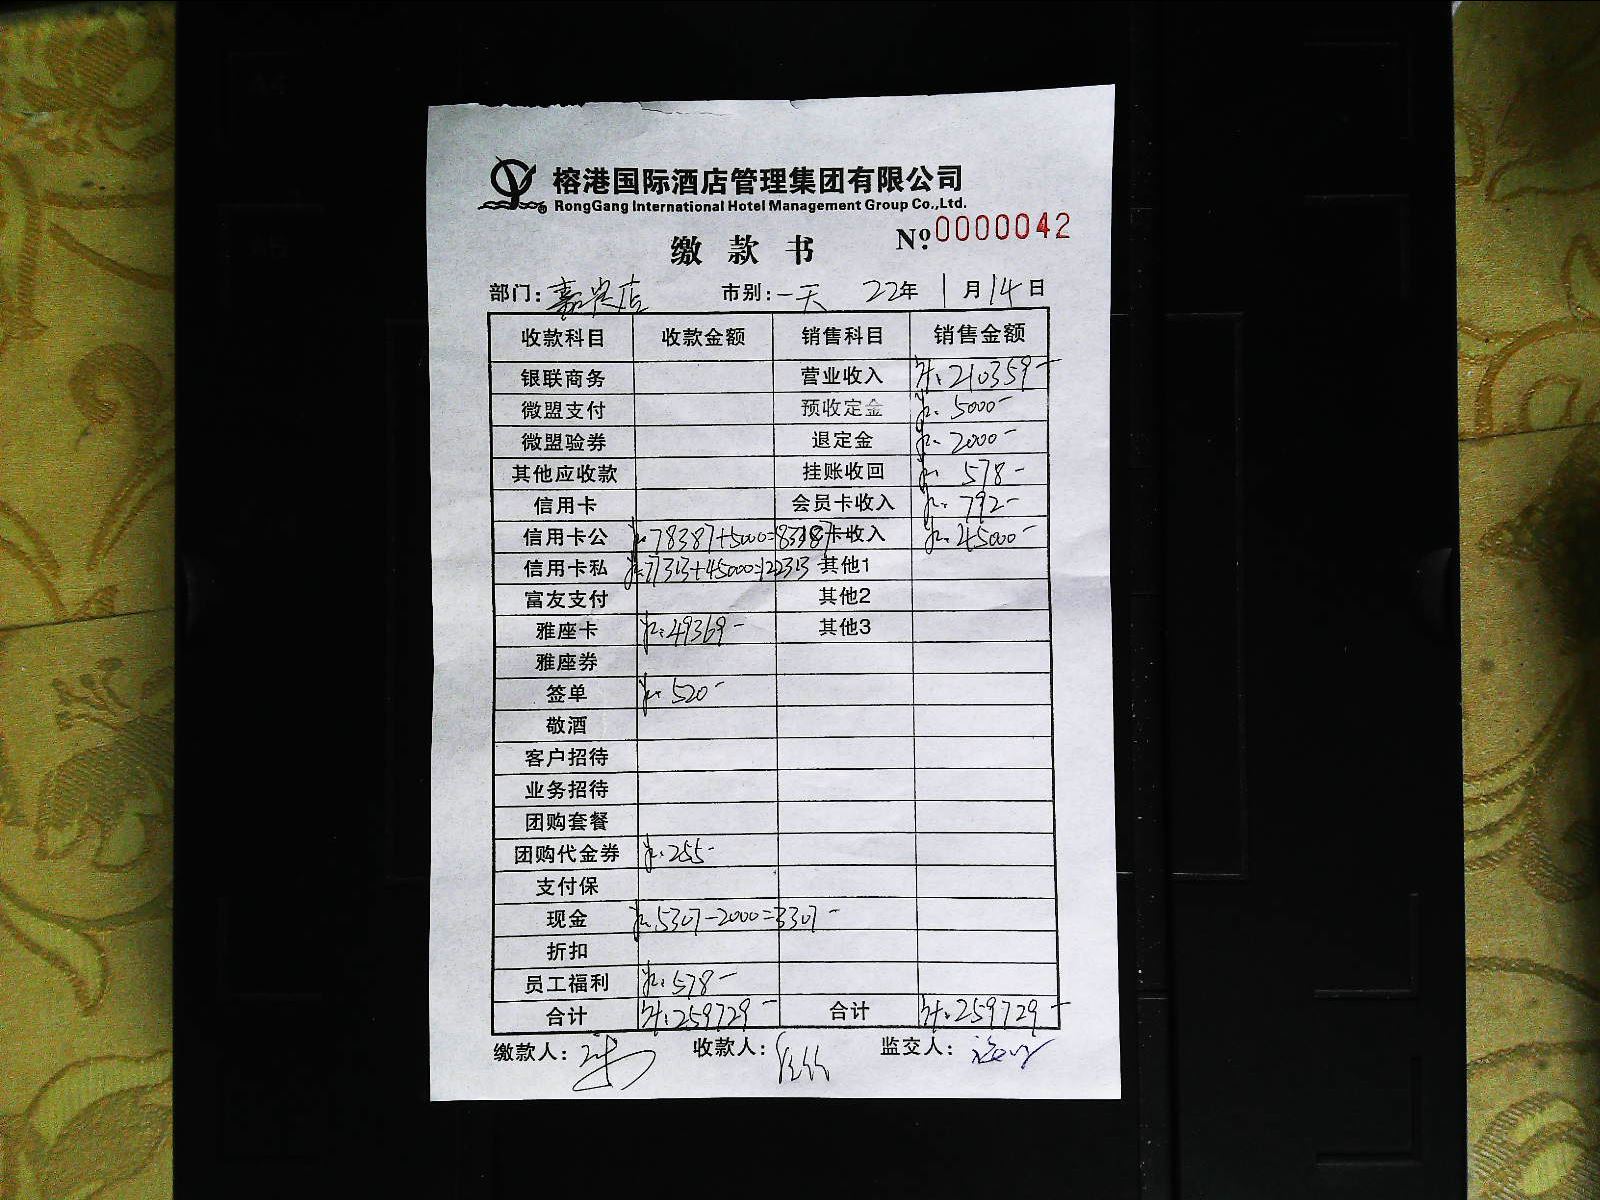 榕港国际酒店管理集团有限公司
RongGang International Hotel Management Group Co.,Ltd.
缴款书 №0000042
部门：嘉宾店 市别：一天 22年1月14日
收款科目 收款金额 销售科目 销售金额
银联商务 营业收入 计：210359-
微盟支付 预收定金 5000-
微盟验券 退定金 2000-
其他应收款 挂账收回 578-
信用卡 会员卡收入 792-
信用卡公 78387+5000=83387 卡收入 45000-
信用卡私 77313+45000=122313 其他1
富友支付 其他2
雅座卡 49369- 其他3
雅座券
签单 520-
敬酒
客户招待
业务招待
团购套餐
团购代金券 255-
支付保
现金 5307-2000=3307-
折扣
员工福利 578-
合计 计：259729- 合计 计：259729-
缴款人： 收款人： 监交人：